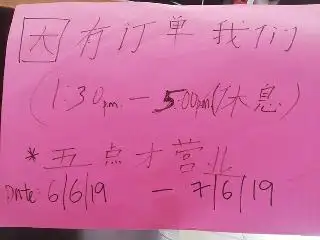 大有订单我们
(1:30pm — 5:00pm(休息)
*五点才营业
DATE: 6/6/19 — 7/6/19